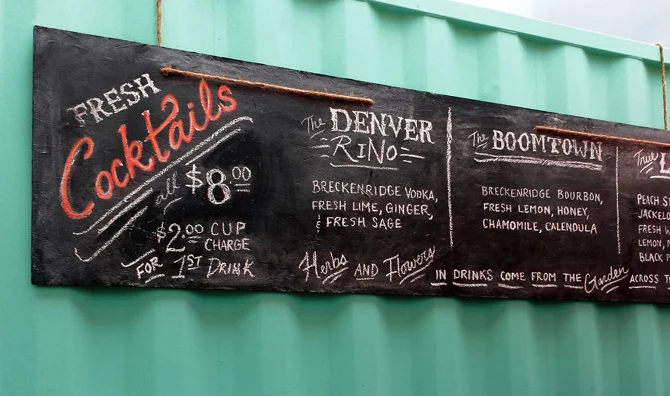 FRESH
Cocktails
all $8.00
$2.00 CUP
CHARGE
FOR 1ST DRINK
The DENVER
RINO
BRECKENRIDGE VODKA,
FRESH LIME, GINGER,
& FRESH SAGE
The BOOMTOWN
BRECKENRIDGE BOURBON,
FRESH LEMON, HONEY,
CHAMOMILE, CALENDULA
True L
PEACH
FRESH
LEMON,
BLACK
Herbs AND Flowers IN DRINKS COME FROM THE Garden ACROSS